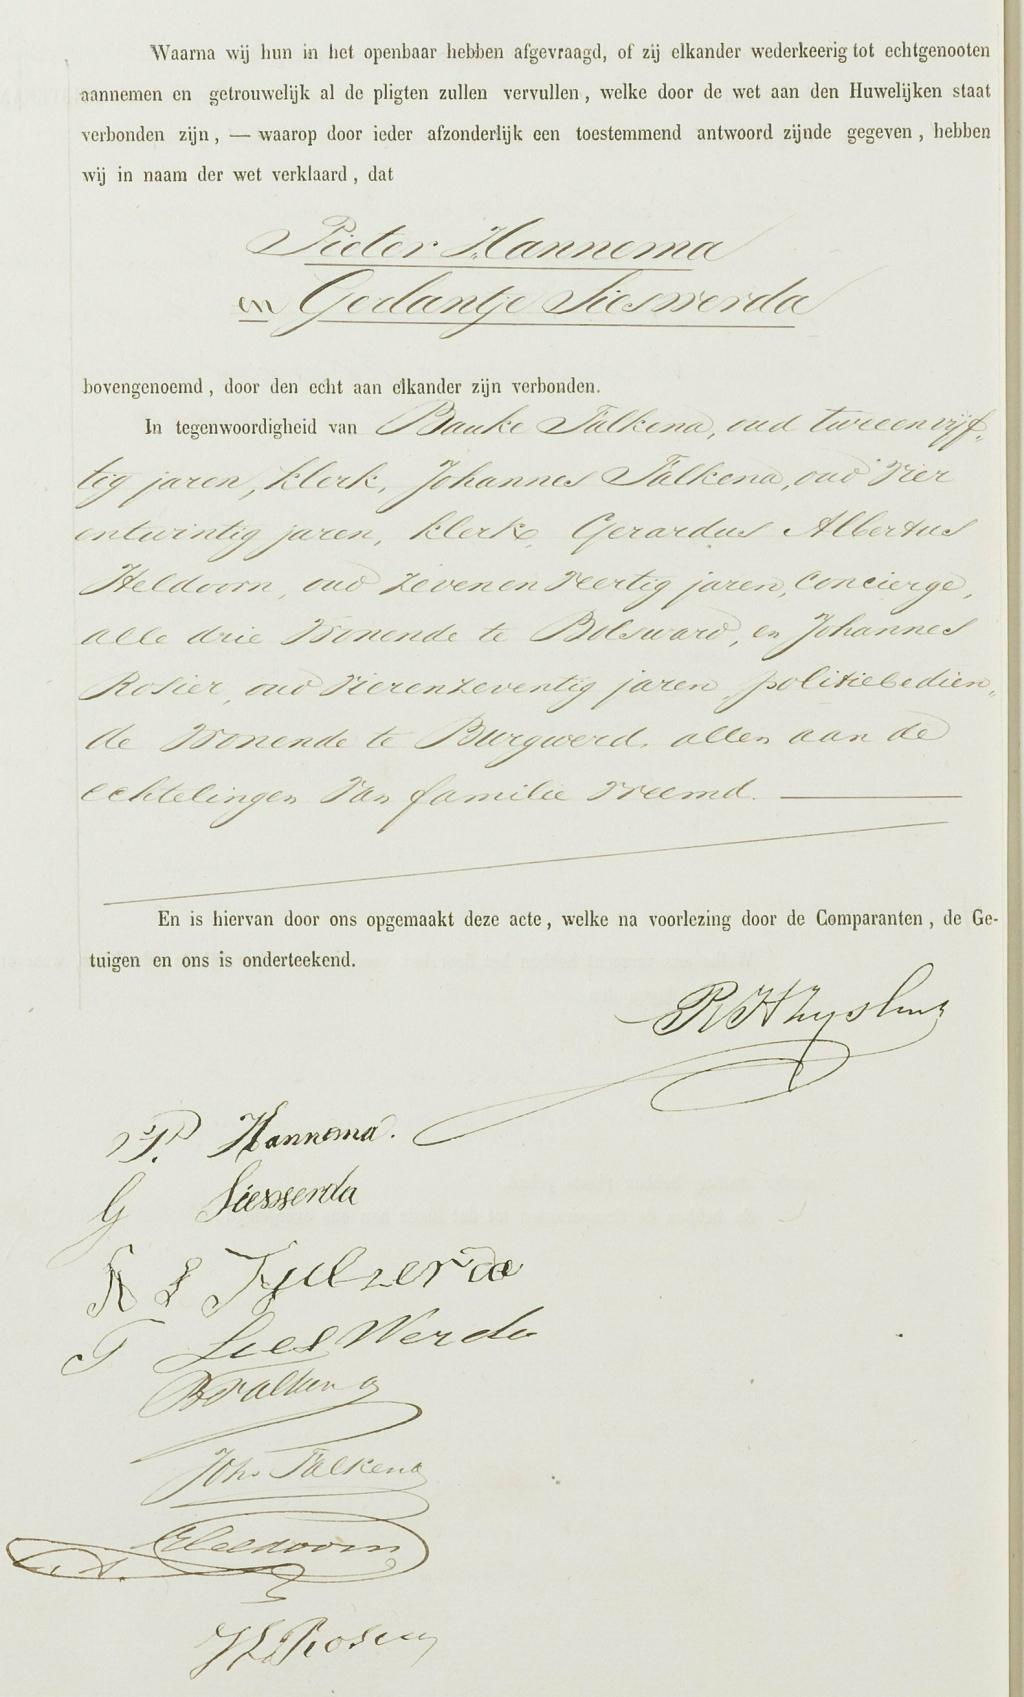 Waarna wij hun in het openbaar hebben afgevraagd, of zij elkander wederkeerig tot echtgenooten
aannemen en getrouwelijk al de pligten zullen vervullen, welke door de wet aan den Huwelijken staat
verbonden zijn, — waarop door ieder afzonderlijk een toestemmend antwoord zijnde gegeven, hebben
wij in naam der wet verklaard, dat
Pieter Hannema
en Gerlantje Sieswerda
bovengenoemd, door den echt aan elkander zijn verbonden.
In tegenwoordigheid van Bauke Falkena, oud tweeenvijf„
tig jaren, klerk, Johannes Falkena, oud vier
entwintig jaren, klerk, Gerardus Albertus
Heldoorn, oud zevenenveertig jaren, Concierge,
alle drie wonende te Bolsward, en Johannes
Rosier, oud vierenzeventig jaren, politiebedien„
de wonende te Burgwerd, allen aan de
echtelingen van familie vreemd.
En is hiervan door ons opgemaakt deze acte, welke na voorlezing door de Comparanten, de Ge-
tuigen en ons is onderteekend.
P. Hannema.
G Sieswerda
T SiesWerda
B Falkena
Joh. Falkena